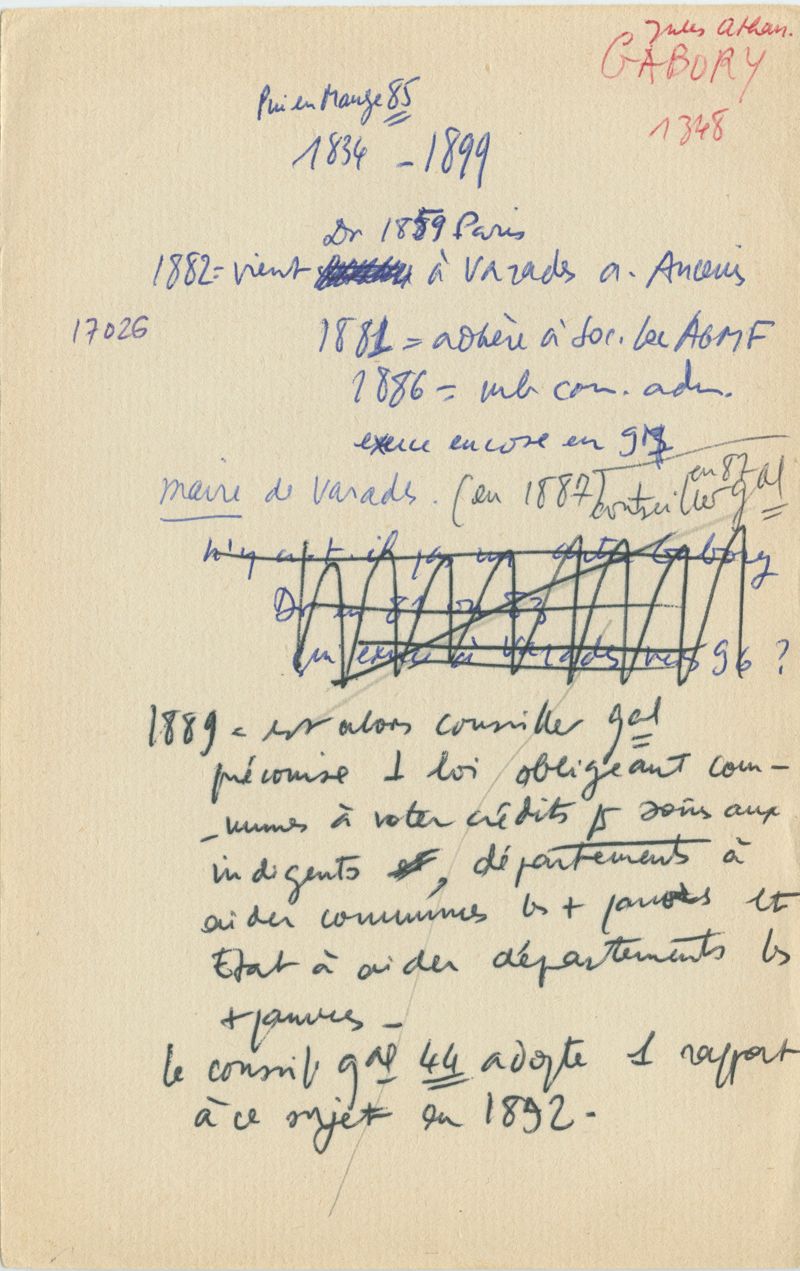 Jules Athan.
GABORY
1348
Puy en Mauge 85
1834 - 1899
Dr 1859 Paris
1882 = vient à Varades a. Ancenis
17026
1881 = adhère à Soc. loc AGMF
1886 = mb com. adm.
exerce encore en 97
maire de Varades. (en 1887) en 87
conseiller gal
n'y a-t-il pas un autre Gabory
Dr en 81 ou 83
qui exerce à Varades vers 96 ?
1889 = est alors conseiller gal
préconise 1 loi obligeant com-
-munes à voter crédits pr soins aux
indigents , départements à
aider communes ls + pauvres et
Etat à aider départements ls
+ pauvres -
le conseil gal 44 adopte 1 rapport
à ce sujet en 1892 -